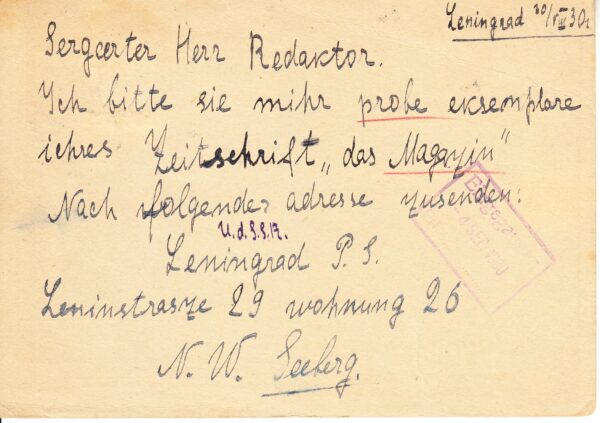 Leningrad 30/VIII 30.
Sergeerter Herr Redaktor.
Ich bitte sie mihr probe eksemplare
ichres Zeitschrift „das Magazin"
Nach folgendes adresse zusenden:
U.d.S.S.R.
Leningrad P.S.
Leninstrasze 29 wohnung 26
N. W. Seeberg.